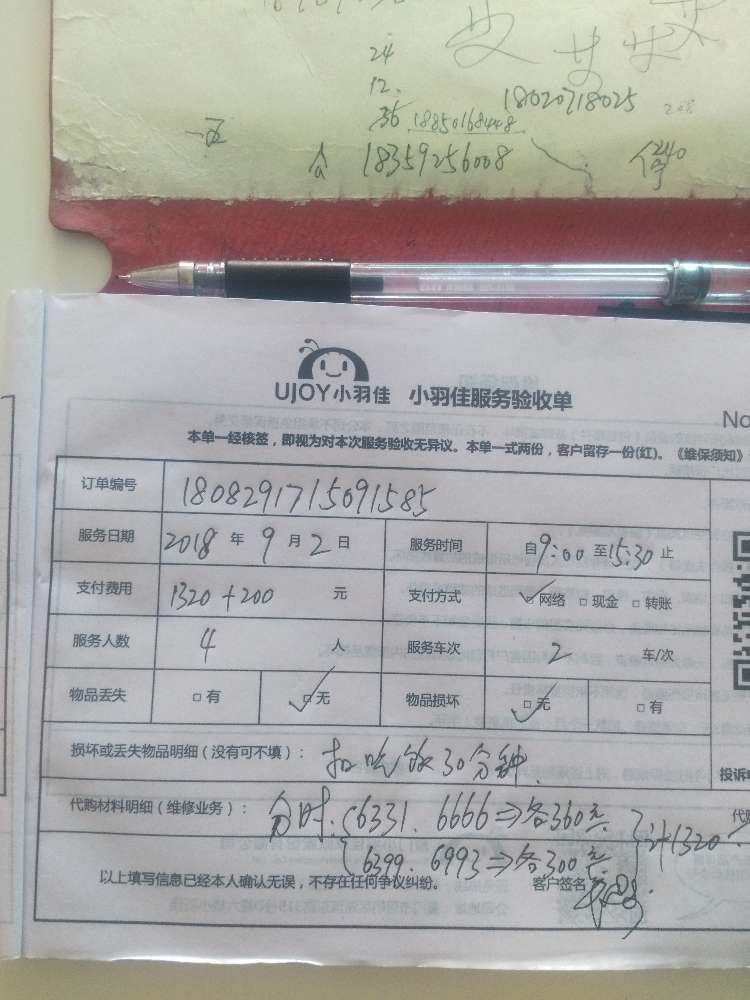 24
12.
36 18850168448
18020718025
18359256008
UJOY小羽佳 小羽佳服务验收单
No
本单一经核签，即视为对本次服务验收无异议。本单一式两份，客户留存一份(红)。《维保须知》
订单编号 1808291715091585
服务日期 2018 年 9 月 2 日 服务时间 自9:00 至15:30 止
支付费用 1320+200 元 支付方式 ☑网络 □现金 □转账
服务人数 4 人 服务车次 2 车/次
物品丢失 □有 ☑无 物品损坏 ☑无 □有
损坏或丢失物品明细（没有可不填）： 扣吃饭30分钟
投诉电
代购材料明细（维修业务）： 合时: 6331. 6666⇒各360元 计1320
代购
6399. 6993⇒各300元
以上填写信息已经本人确认无误，不存在任何争议纠纷。 客户签名